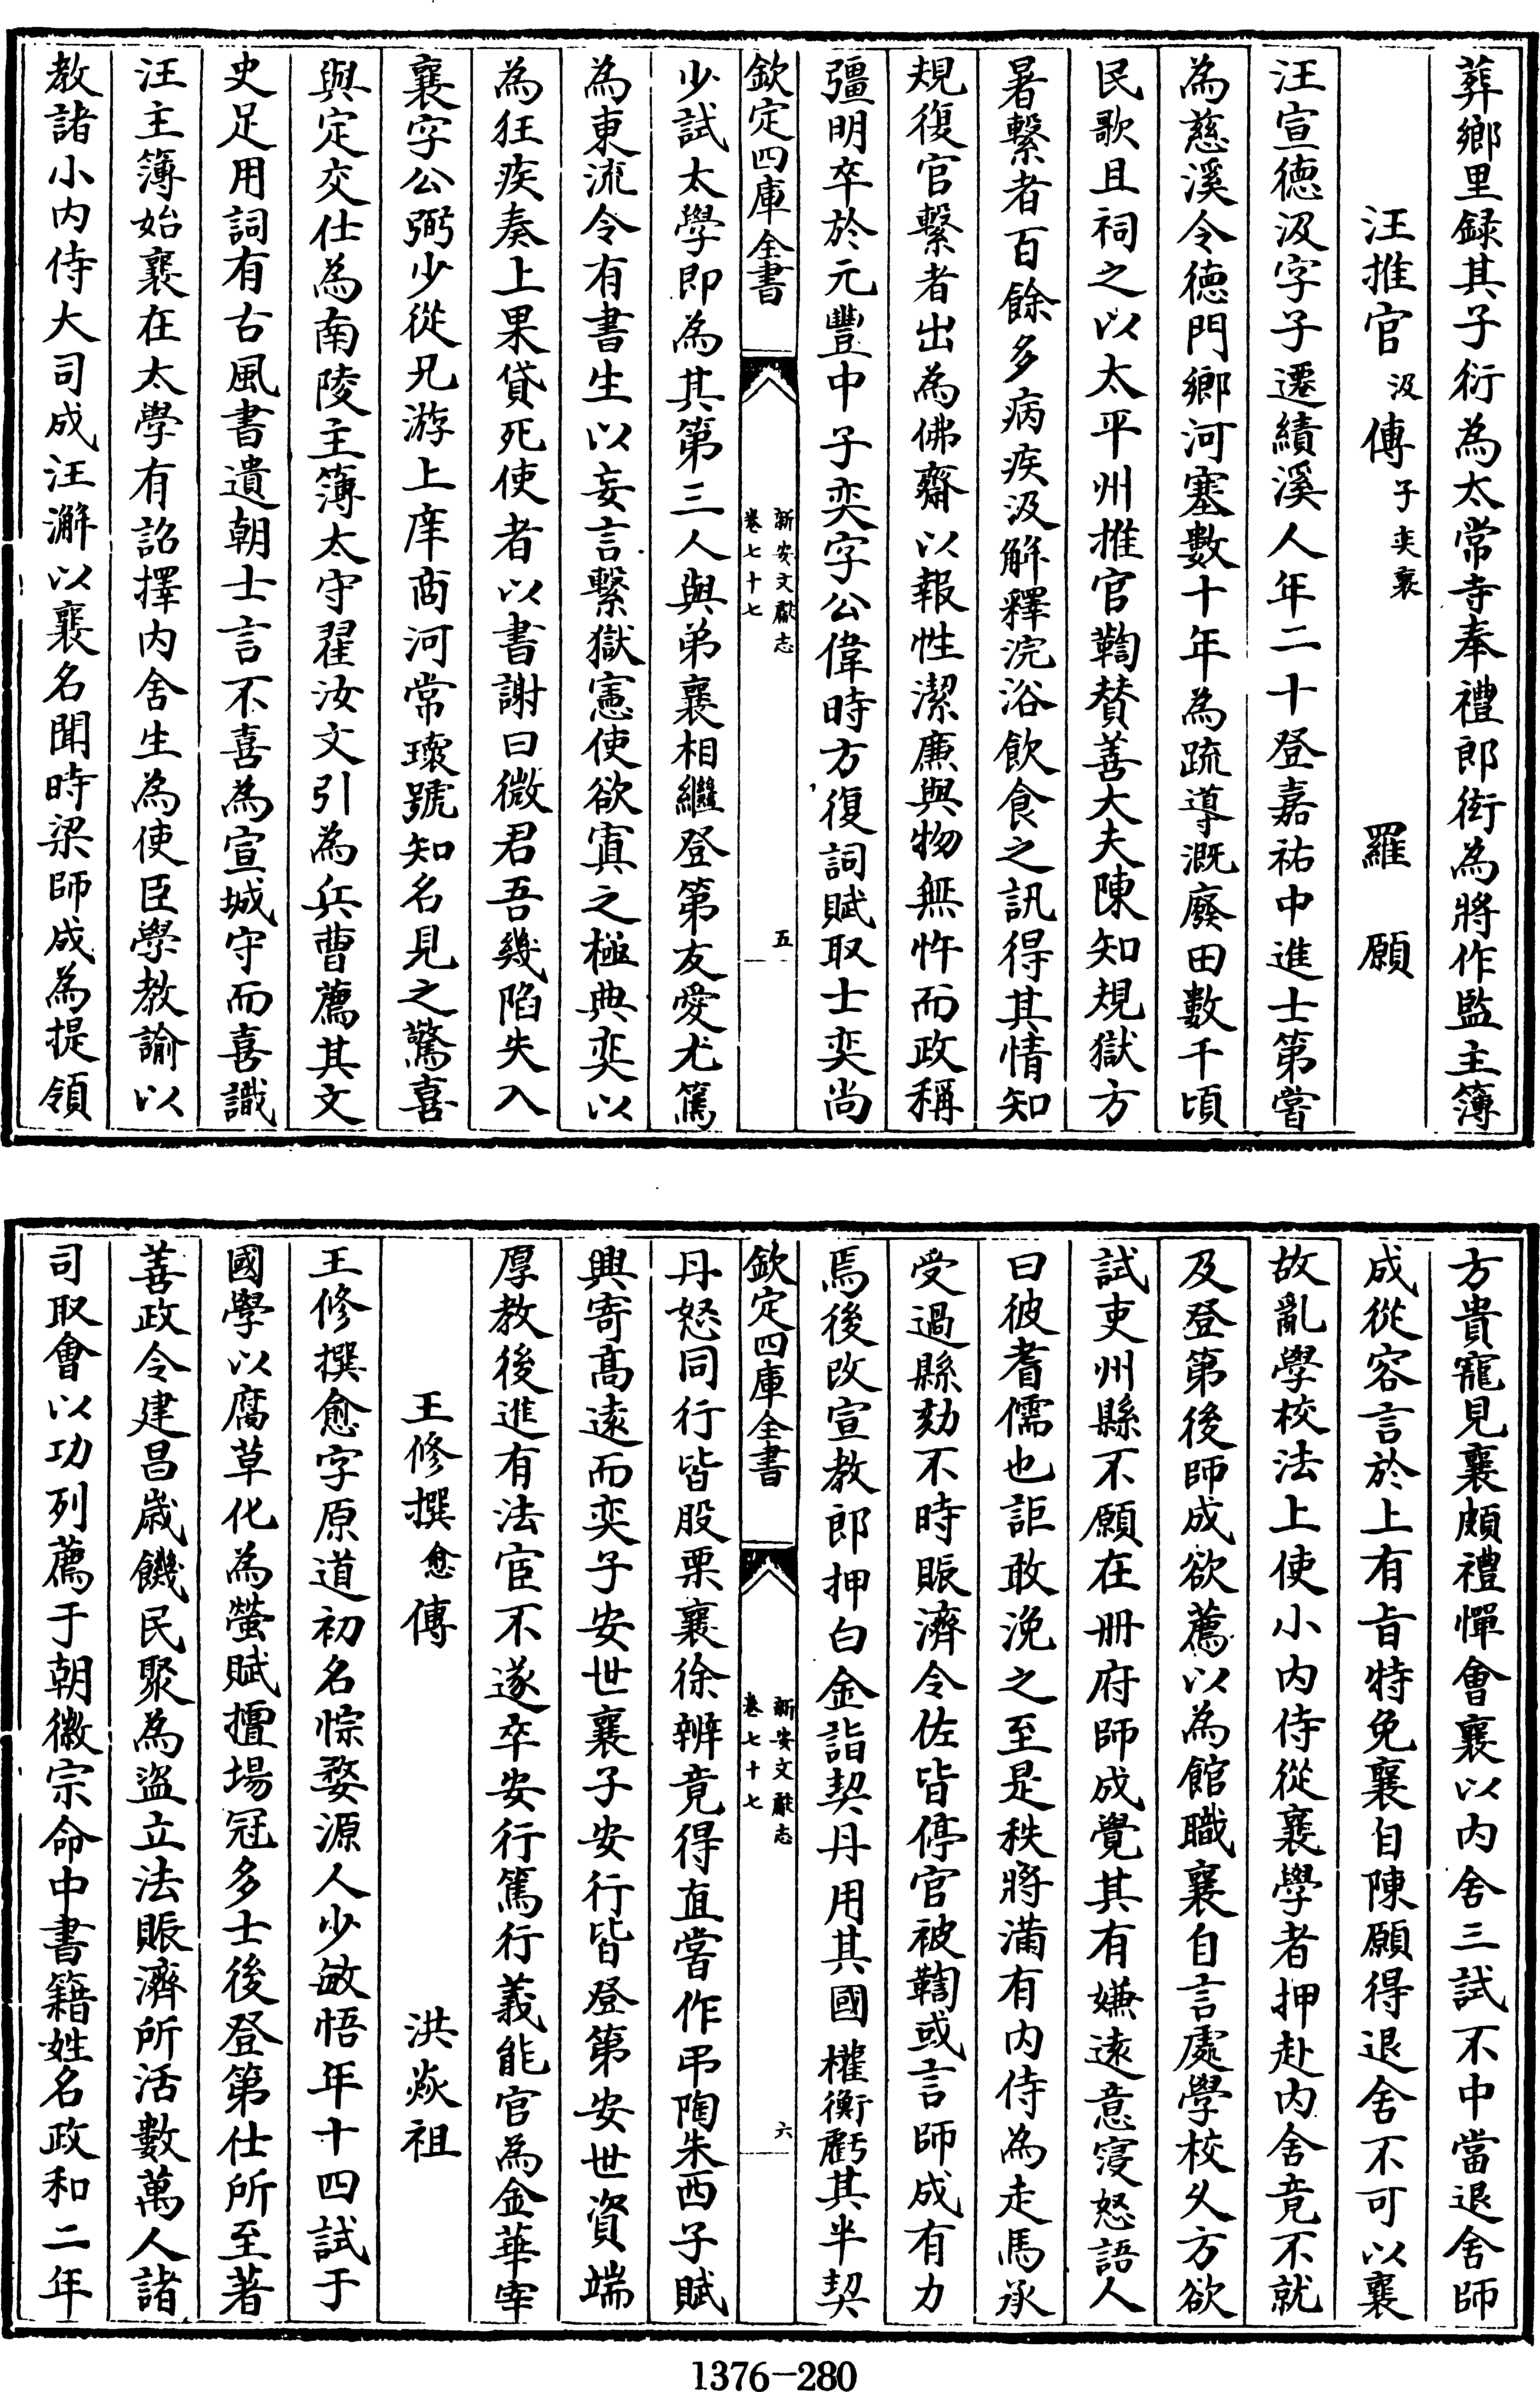 葬鄉里録其子衍為太常寺奉禮郎衒為將作監主簿
汪推官汲傳子奕襄　羅願
汪宣徳汲字子遷績溪人年二十登嘉祐中進士第嘗
為慈溪令徳門鄉河塞數十年為疏導溉廢田數千頃
民歌且祠之以太平州推官鞫賛善大夫陳知規獄方
暑繫者百餘多病疾汲解釋浣浴飲食之訊得其情知
規復官繫者出為佛齋以報性潔廉與物無忤而政稱
彊明卒於元豐中子奕字公偉時方復詞賦取士奕尚
欽定四庫全書
新安文獻志
卷七十七
五
少試太學即為其第三人與弟襄相繼登第友愛尤篤
為東流令有書生以妄言繫獄憲使欲寘之極典奕以
為狂疾奏上果貸死使者以書謝曰微君吾幾陷失入
襄字公弼少從兄游上庠商河常瓌號知名見之驚喜
與定交仕為南陵主簿太守翟汝文引為兵曹薦其文
史足用詞有古風書遺朝士言不喜為宣城守而喜識
汪主簿始襄在太學有詔擇内舍生為使臣學教諭以
教諸小内侍大司成汪澥以襄名聞時梁師成為提領
方貴寵見襄頗禮憚會襄以内舍三試不中當退舍師
成從容言於上有旨特免襄自陳願得退舍不可以襄
故亂學校法上使小内侍從襄學者押赴内舍竟不就
及登第後師成欲薦以為館職襄自言處學校久方欲
試吏州縣不願在冊府師成覺其有嫌逺意寖怒語人
曰彼耆儒也詎敢浼之至是秩將滿有内侍為走馬承
受過縣劾不時賑濟令佐皆停官被鞫或言師成有力
焉後改宣教郎押白金詣契丹用其國權衡虧其半契
欽定四庫全書
新安文獻志
卷七十七
六
丹怒同行皆股栗襄徐辨竟得直嘗作弔陶朱西子賦
興寄髙逺而奕子安世襄子安行皆登第安世資端
厚教後進有法宦不遂卒安行篤行義能官為金華宰
王修撰愈傳　洪焱祖
王修撰愈字原道初名悰婺源人少敏悟年十四試于
國學以腐草化為螢賦擅場冠多士後登第仕所至著
善政令建昌嵗饑民聚為盜立法賑濟所活數萬人諸
司取㑹以功列薦于朝徽宗命中書籍姓名政和二年
1376-280